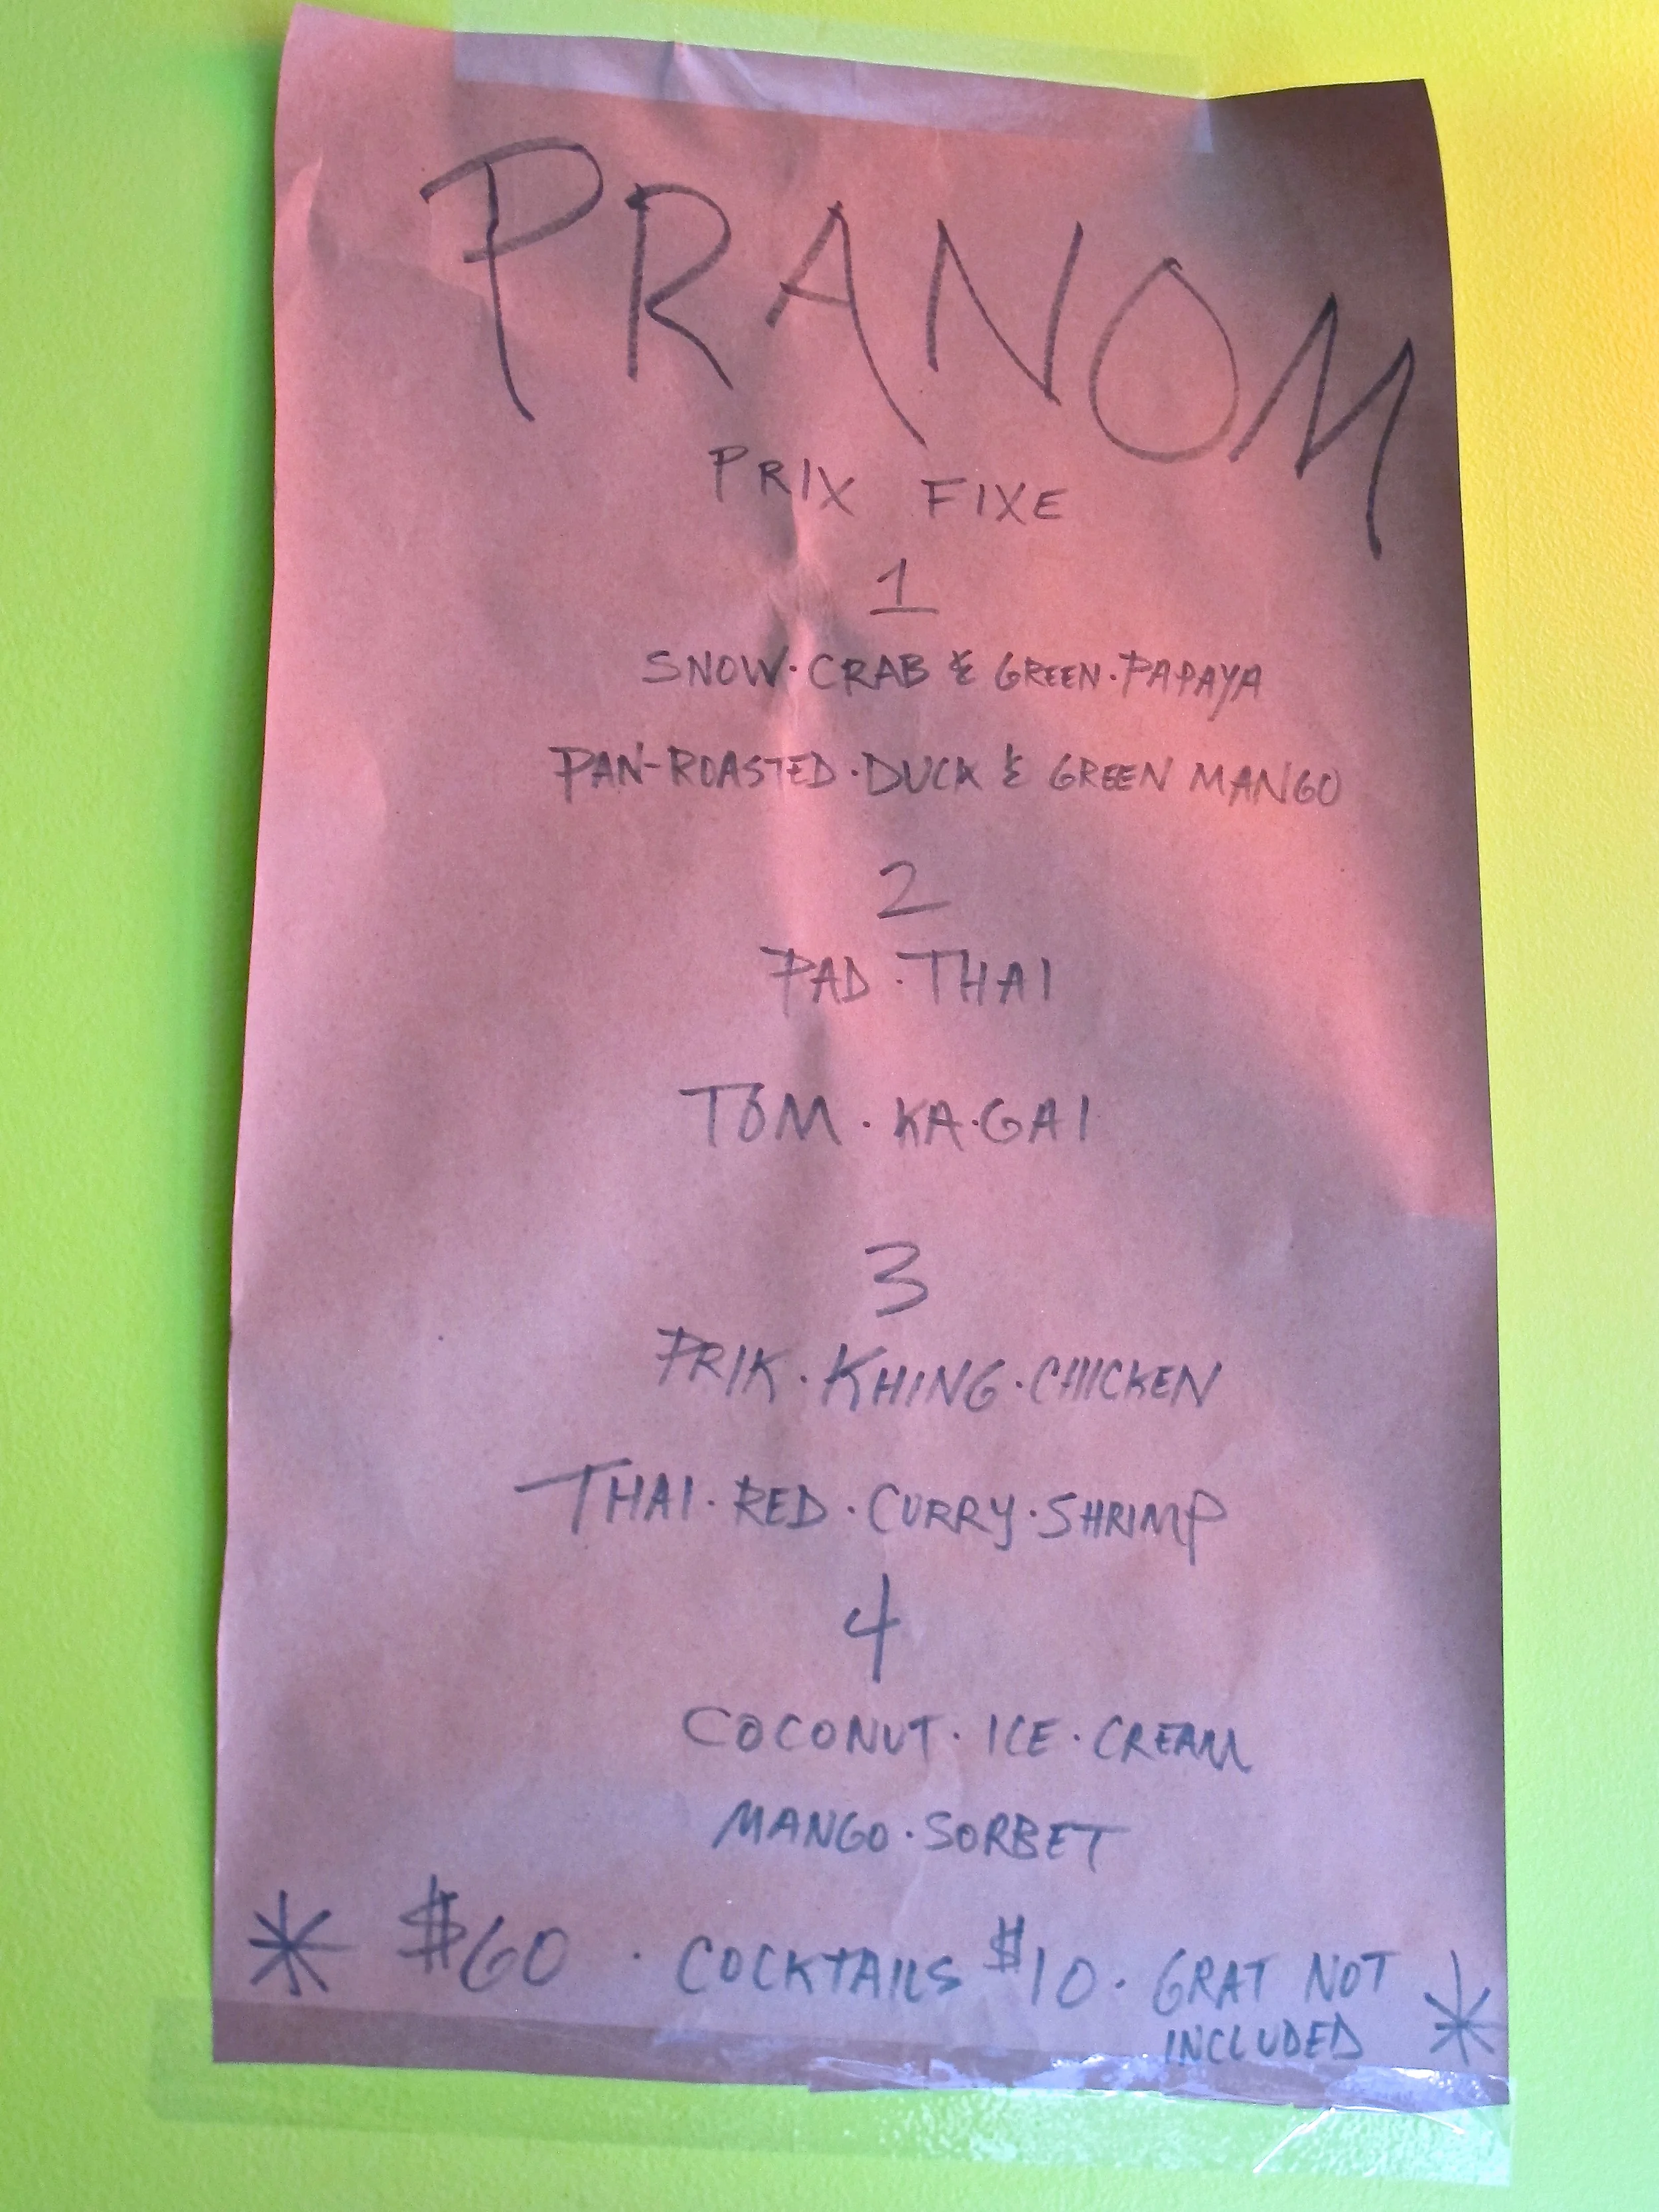 PRANOM
PRIX FIXE
1
SNOW·CRAB & GREEN·PAPAYA
PAN-ROASTED·DUCK & GREEN MANGO
2
PAD·THAI
TOM·KA·GAI
3
PRIK·KHING·CHICKEN
THAI·RED·CURRY·SHRIMP
4
COCONUT·ICE·CREAM
MANGO·SORBET
* $60 · COCKTAILS $10· GRAT NOT *
INCLUDED